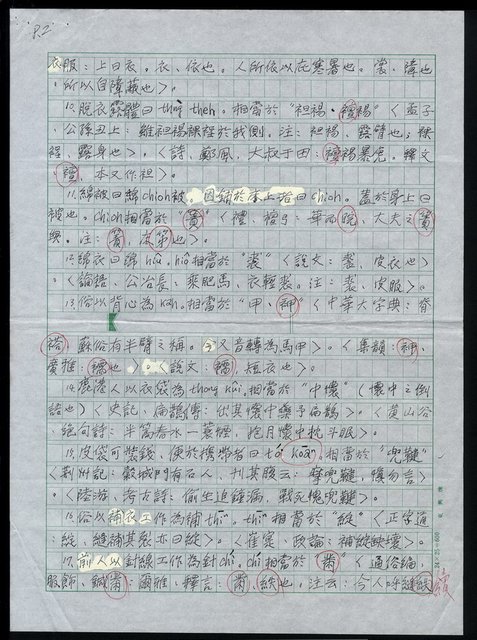 P.2
衣服：上曰衣。衣、依也。人所依以庇寒暑也。裳、障也
。所以自障蔽也〉。
10.脫衣露體曰 theh。相當於"袒裼、襢裼"〈孟子、
公孫丑上：雖袒裼裸裎於我側。注：袒裼、露臂也；裸
裎、露身也〉。〈詩、鄭風、大叔于田：襢裼暴虎。釋文
襢、本又作袒〉。
11.綿被曰綿chioh被。因鋪於床上 曰chioh。蓋於身上曰
被也。chioh相當於"簀"〈禮、檀弓：華而睆、大夫之簀
與。注：簀、床第也〉。
12.綿衣曰綿 hiû。hiû相當於"裘"〈說文：裘、皮衣也〉
〈論語、公冶長：乘肥馬、衣輕裘。注：裘、皮服〉。
13.俗以背心為kah。相當於"甲、䘥"〈中華大字典：脊
 蘇俗有半臂之稱。今又音轉為馬甲〉。〈集韻：䘥、
 襦也〉。〈說文：襦、短衣也〉。
14.鹿港人以衣袋為thong kûi。相當於"中懷"(懷中之倒
語也)〈史記、扁鵲傳：出其懷中藥予扁鵲〉。〈黃山谷、
絕句詩：半篙春水一蓑煙、抱月懷中枕斗眠〉。
15.皮袋可裝錢、便於攜帶者曰 相當於"兜鞬"
〈荊州記：穀城門有石人、刊其腹云：摩兜鞬、慎勿言〉。
〈陸游、考古詩：偷生迫鐘漏、戰死愧兜鞬〉。
16.俗以補衣工作為補thīⁿ。thīⁿ相當於"綻"〈正字通
：綻、縫補其裂亦曰綻〉。〈崔寔、政論：補綻缺壞〉。
17.前人以針線工作為針chí。chí相當於"黹"〈通俗編、
服飾、鍼黹：爾雅、釋言：黹、紩也。注云：今人呼縫紩